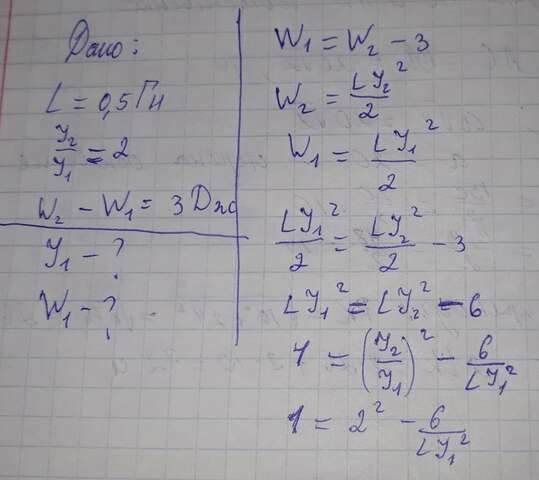 Дано:
L = 0,5 Гн
У₂/У₁ = 2
W₂ - W₁ = 3 Дж
У₁ - ?
W₁ - ?
W₁ = W₂ - 3
W₂ = LУ₂²/2
W₁ = LУ₁²/2
LУ₁²/2 = LУ₂²/2 - 3
LУ₁² = LУ₂² - 6
1 = (У₂/У₁)² - 6/LУ₁²
1 = 2² - 6/LУ₁²